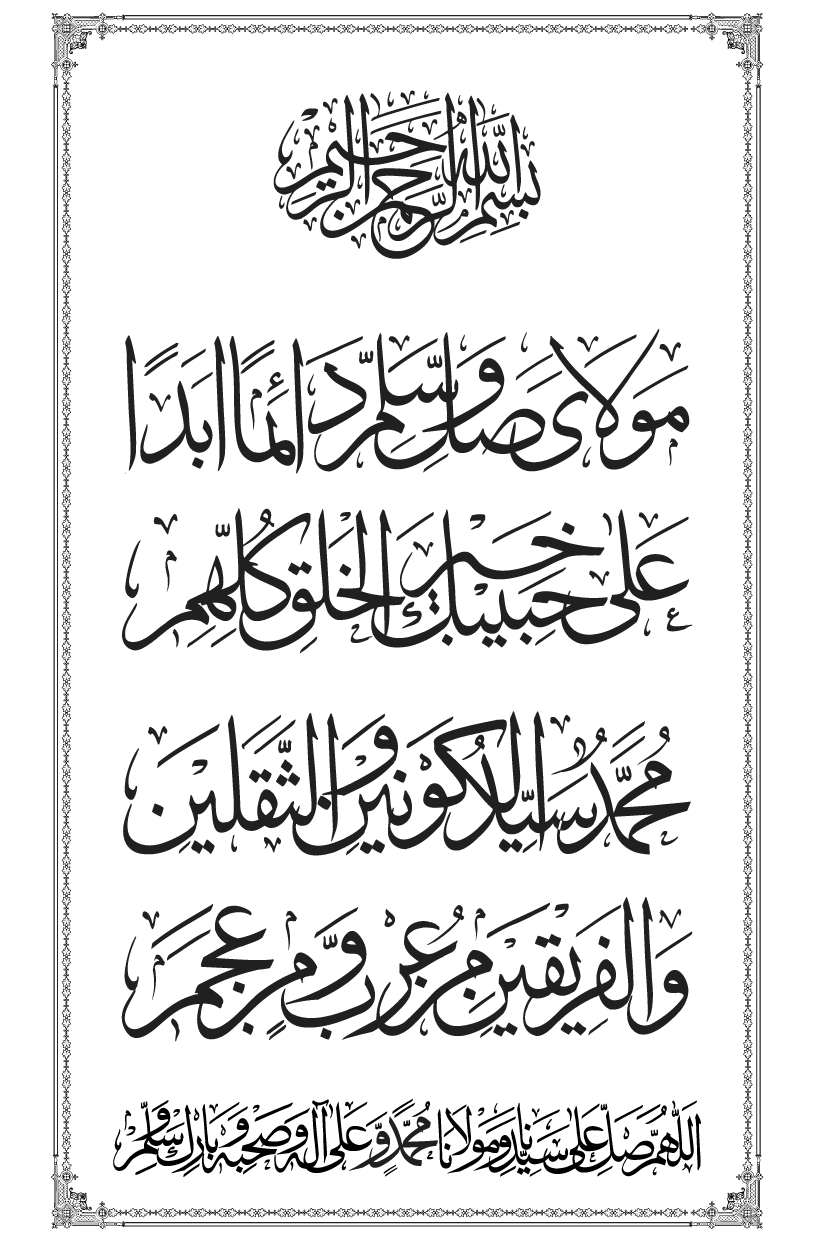 بِسْمِ اللهِ الرَّحْمٰنِ الرَّحِيْمِ
مَوْلَايَ صَلِّ وَسَلِّمْ دَائِمًا اَبَدًا
عَلٰى حَبِيْبِكَ خَيْرِ الْخَلْقِ كُلِّهِمِ
مُحَمَّدٌ سَيِّدُ الْكَوْنَيْنِ وَالثَّقَلَيْنِ
وَالْفَرِيْقَيْنِ مِنْ عُرْبٍ وَّمِنْ عَجَمِ
اَللّٰهُمَّ صَلِّ عَلٰى سَيِّدِنَا وَمَوْلَانَا مُحَمَّدٍ وَّعَلٰى آلِهِ وَصَحْبِهِ وَبَارِكْ وَسَلِّمْ